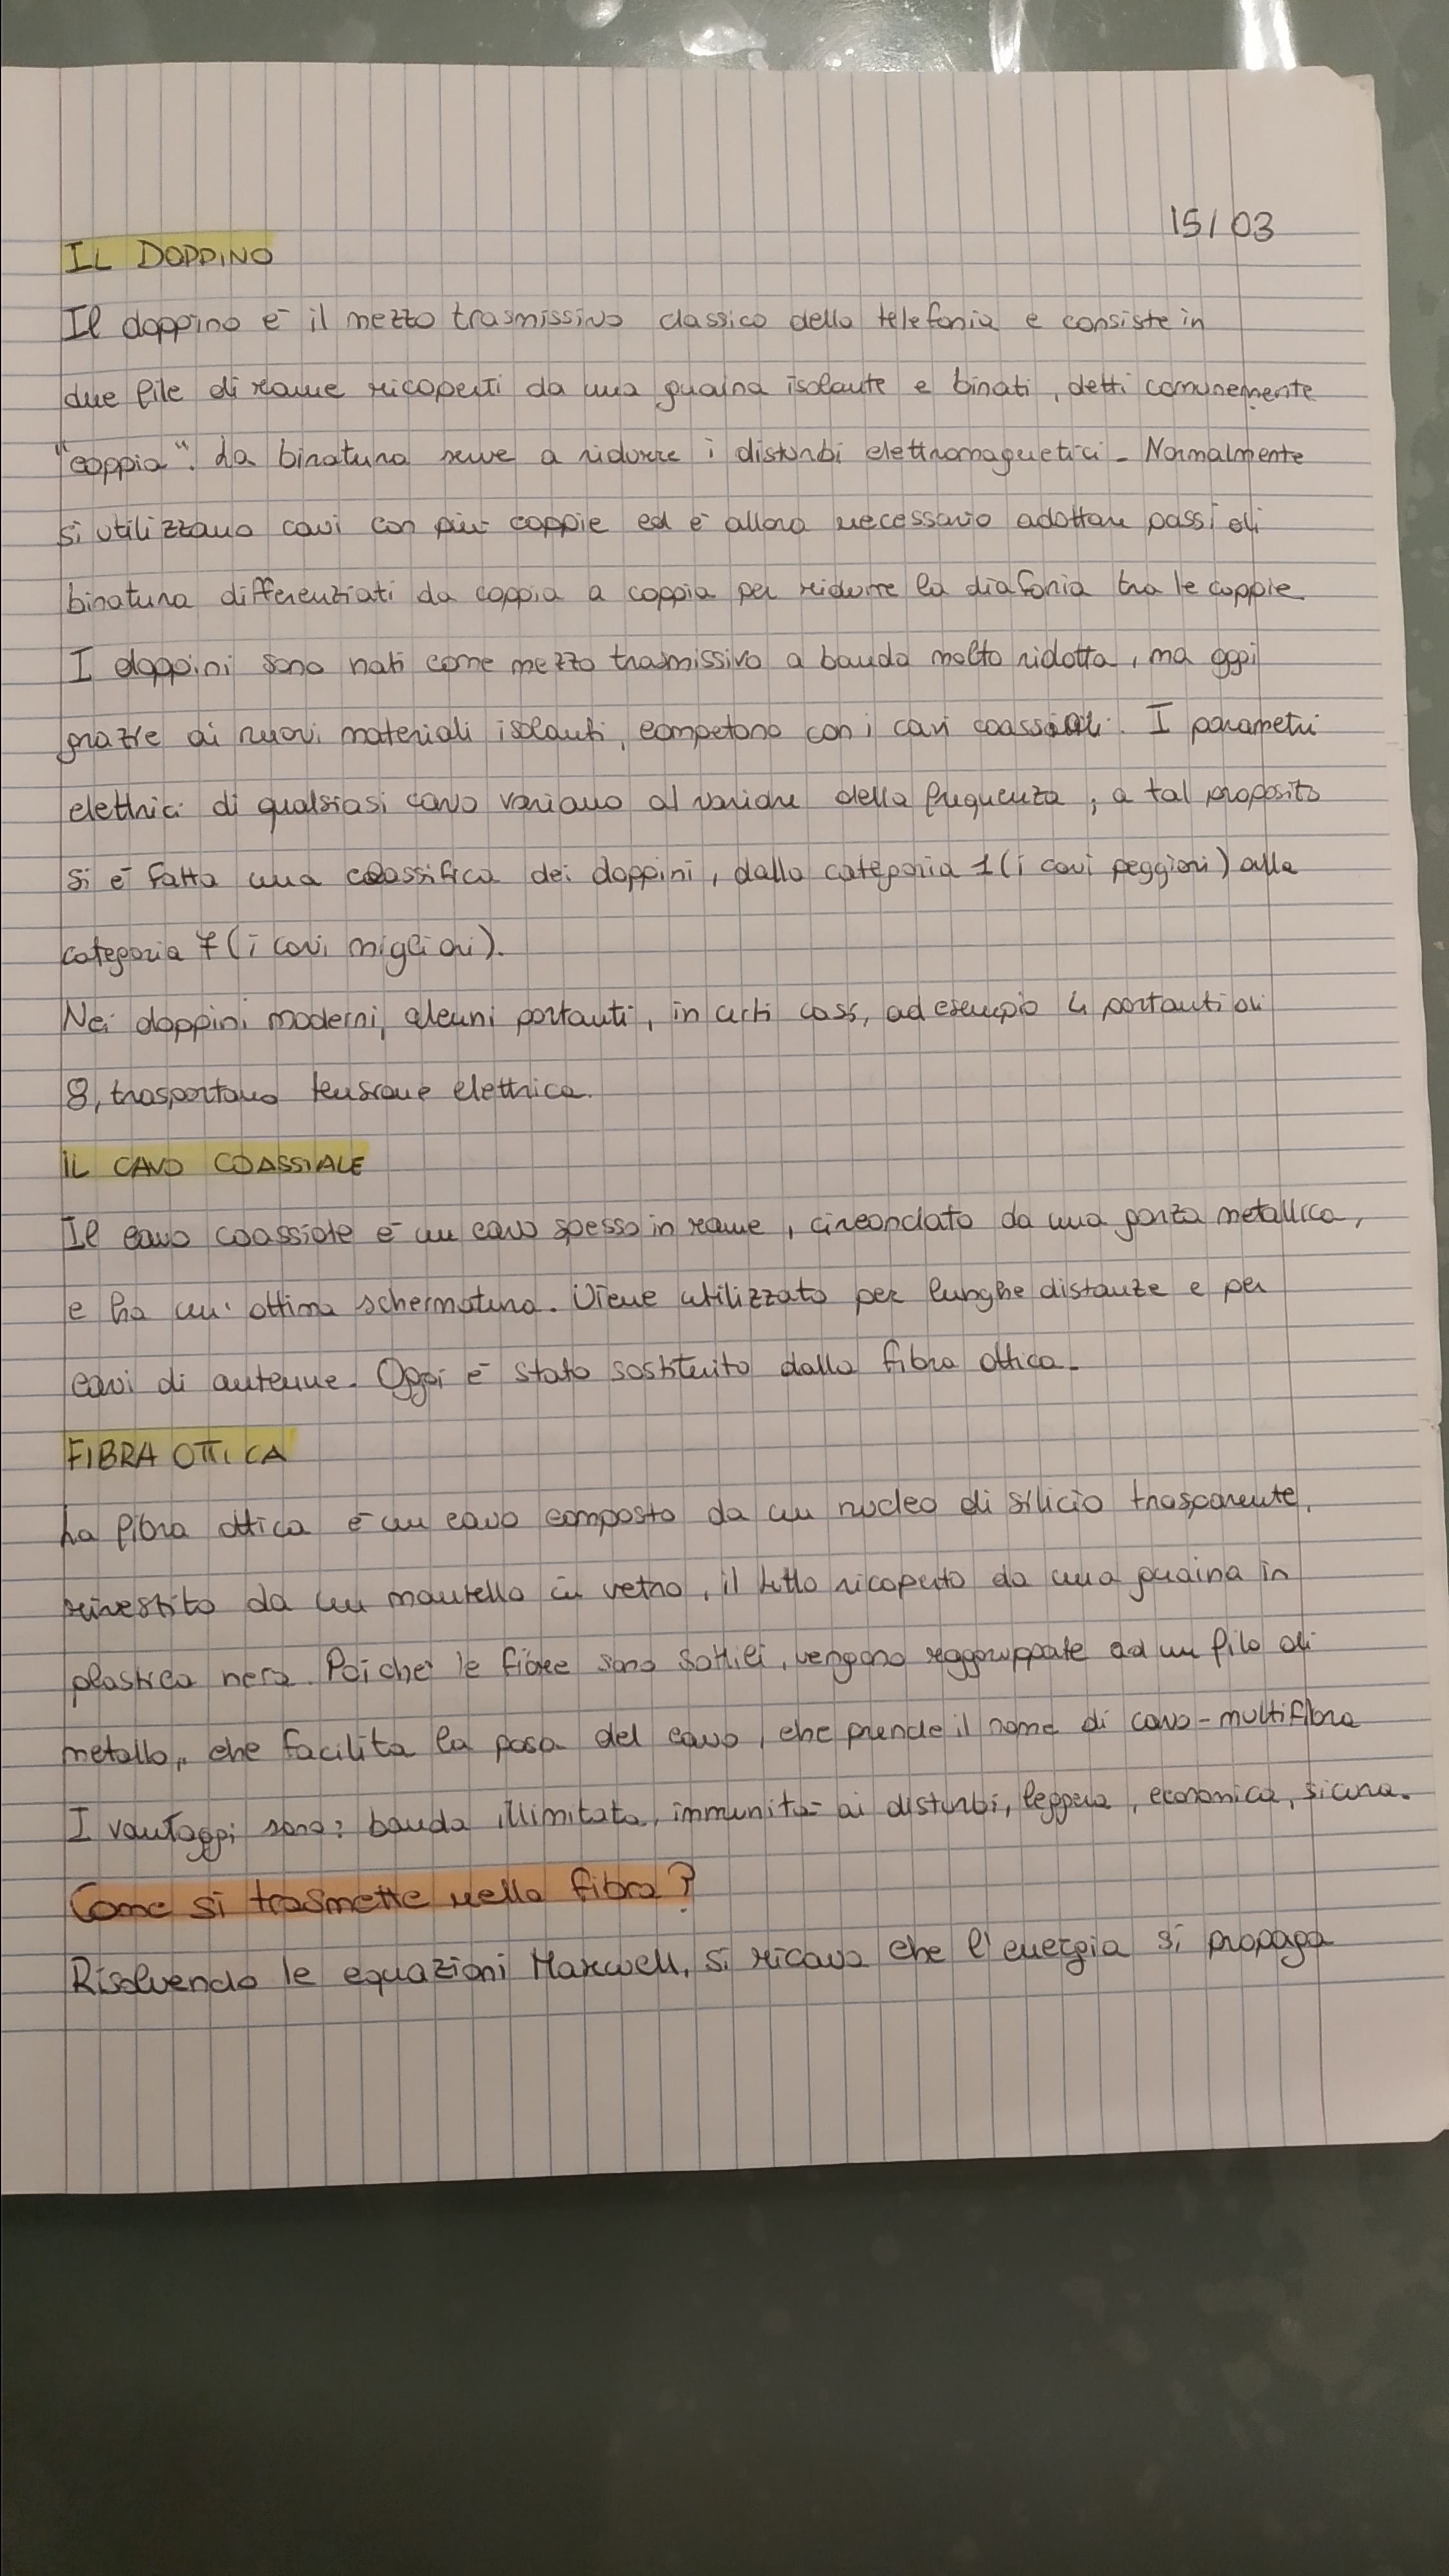 15/03
IL DOPPINO
Il doppino è il mezzo trasmissivo classico della telefonia e consiste in
due file di rame ricoperti da una guaina isolante e binati, detti comunemente
"coppia". La binatura serve a ridurre i disturbi elettromagnetici. Normalmente
si utilizzano cavi con più coppie ed è allora necessario adottare passi di
binatura differenziati da coppia a coppia per ridurre la diafonia tra le coppie.
I doppini sono nati come mezzo trasmissivo a banda molto ridotta, ma oggi
grazie ai nuovi materiali isolanti, competono con i cavi coassiali. I parametri
elettrici di qualsiasi cavo variano al variare della frequenza, a tal proposito
si è fatta una classifica dei doppini, dalla categoria 1 (i cavi peggiori) alla
categoria 7 (i cavi migliori).
Nei doppini moderni, alcuni portanti, in certi casi, ad esempio 4 portanti di
8, trasportano tensione elettrica.
IL CAVO COASSIALE
Il cavo coassiale è un cavo spesso in rame, circondato da una garza metallica,
e ha un'ottima schermatura. Viene utilizzato per lunghe distanze e per
cavi di antenne. Oggi è stato sostituito dalla fibra ottica.
FIBRA OTTICA
La fibra ottica è un cavo composto da un nucleo di silicio trasparente,
rivestito da un mantello in vetro, il tutto ricoperto da una guaina in
plastica nera. Poichè le fibre sono sottili, vengono raggruppate ad un filo di
metallo, che facilita la posa del cavo, che prende il nome di cavo-multifibra
I vantaggi sono: banda illimitata, immunità ai disturbi, leggera, economica, sicura.
Come si trasmette nella fibra?
Risolvendo le equazioni Maxwell, si ricava che l'energia si propaga